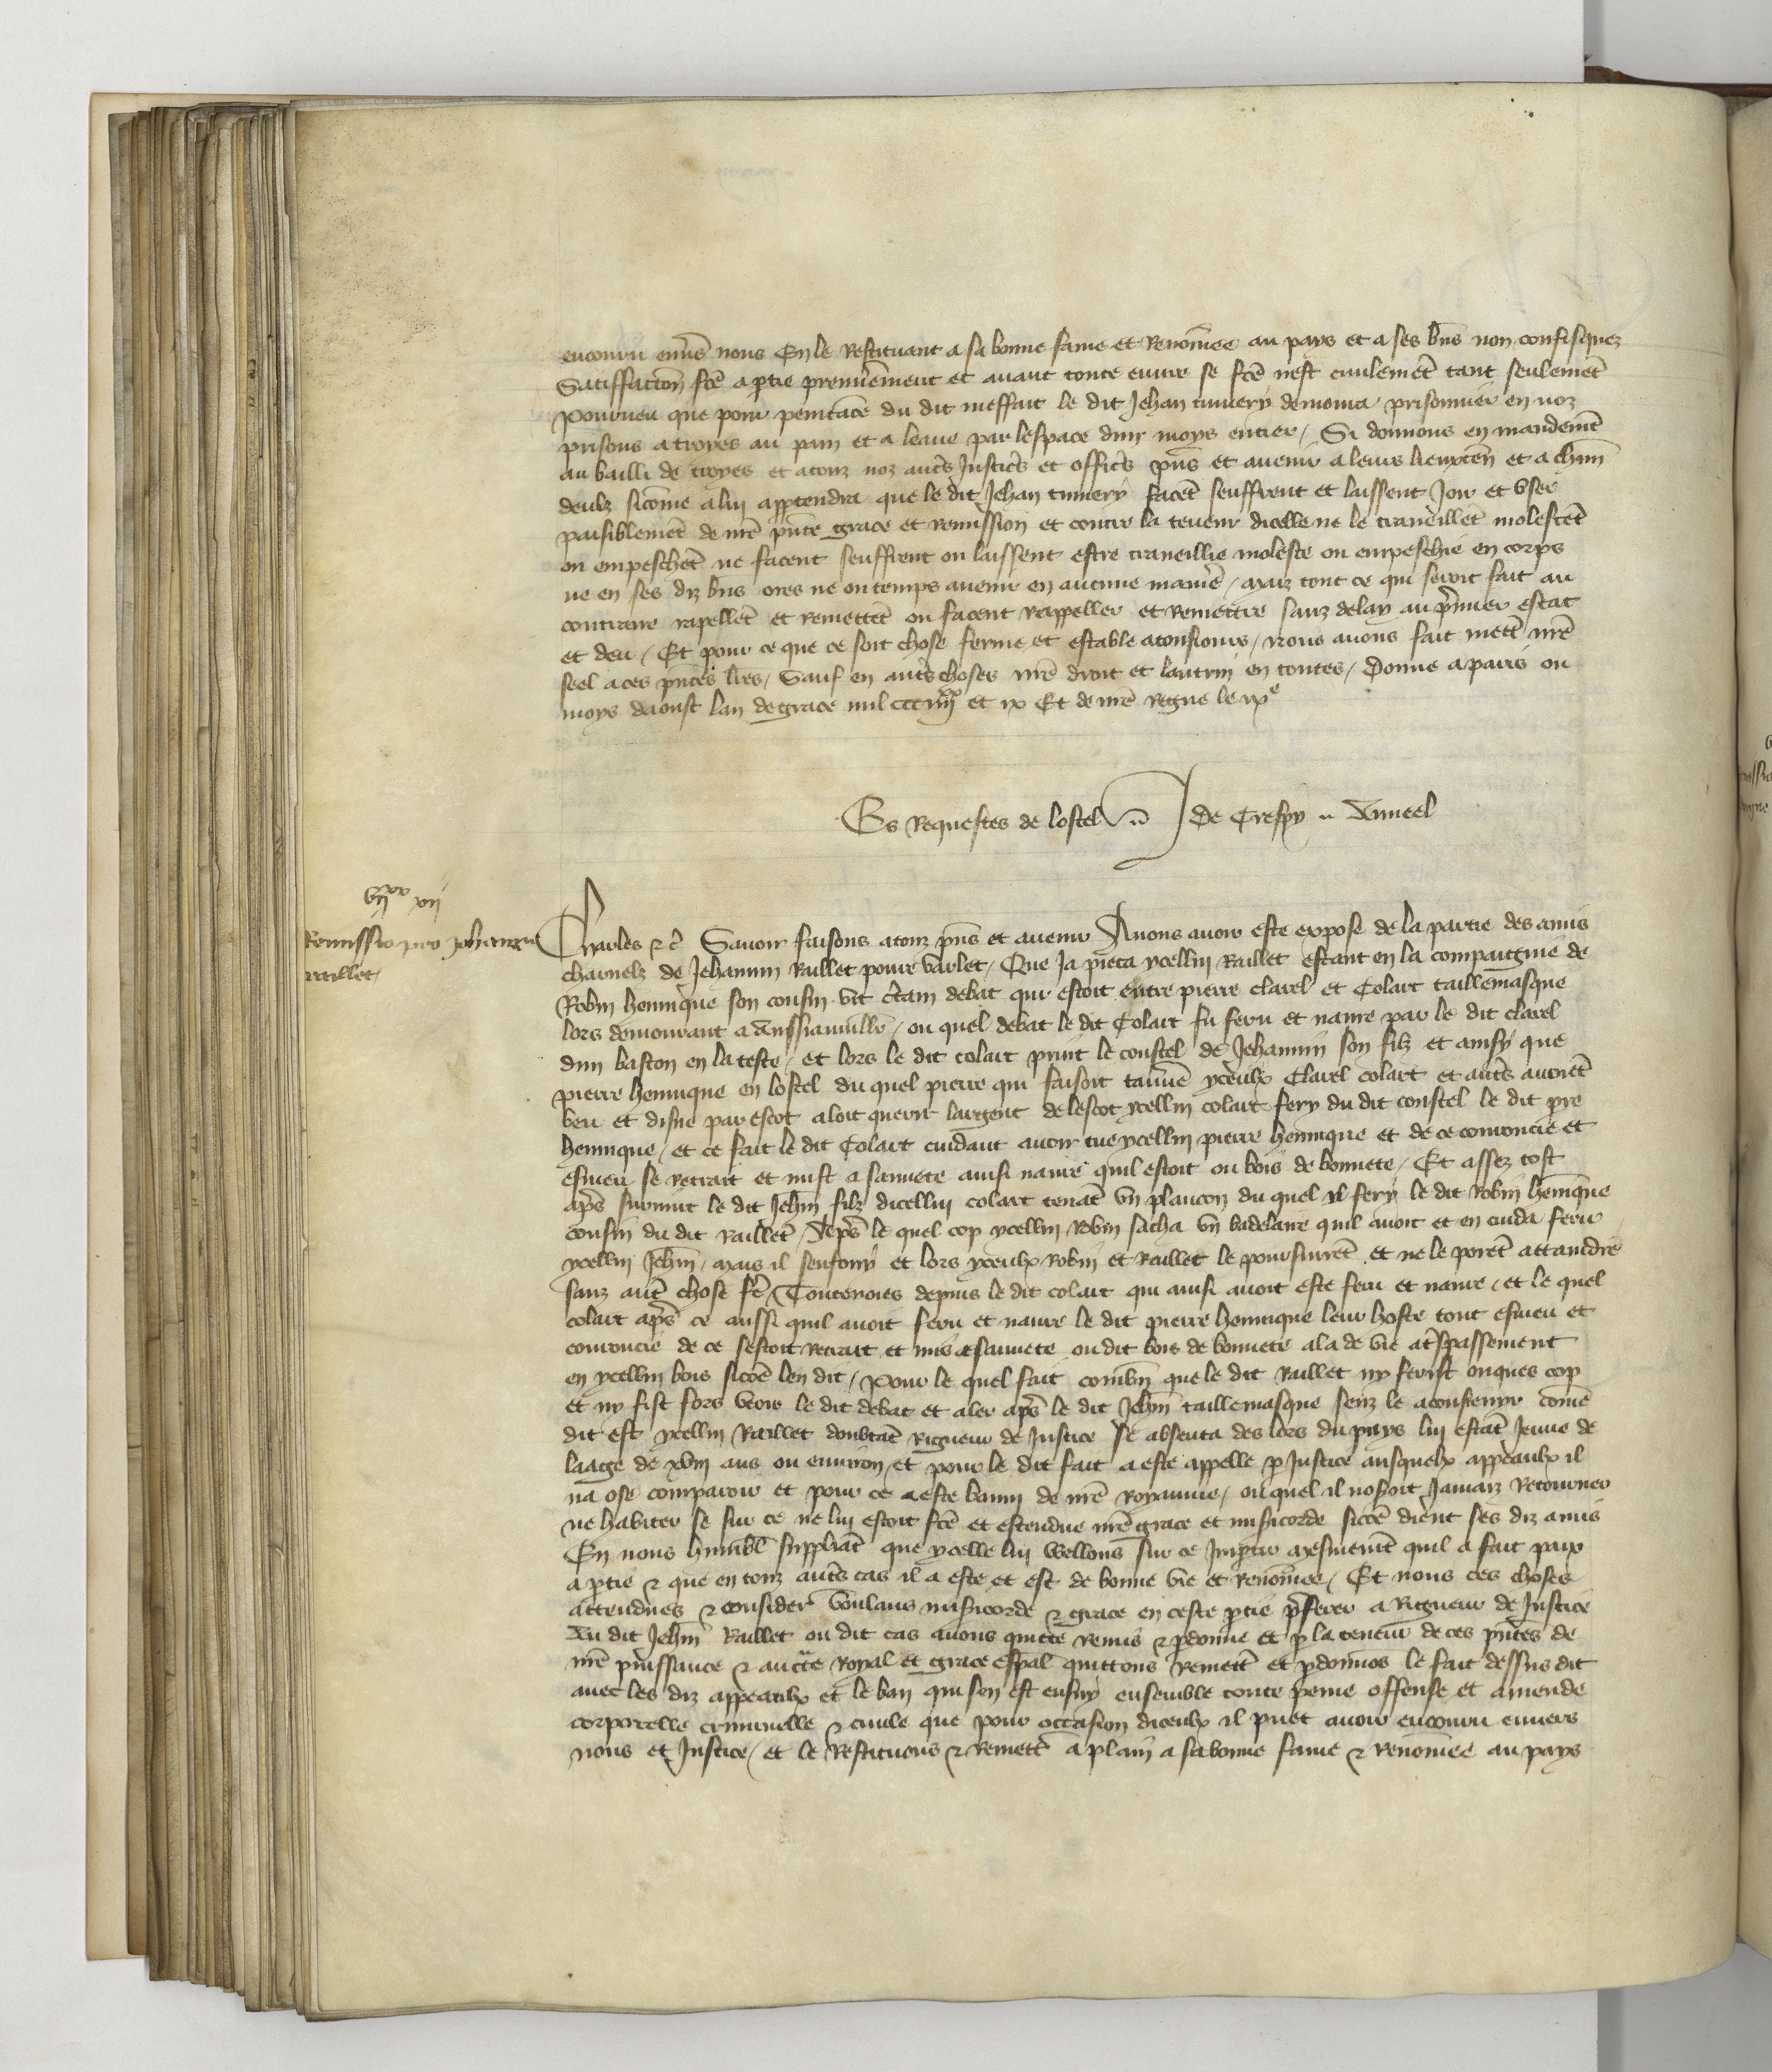 encouru enu's nous En le Restituant a sa bonne fame et Renom̄ee au pays et a ses biēs non confisquez
Satiffacion fcē a ptie premierement et auant toute euure se fcē nest ciuilemēt tant seulemēt
Pourueu que pour penitāce du dit meffait le dit Jehan demoura prisonnier en noz
prisons a troyes au pain et a leaue par lespace dun moys entier / Si donnons en mandemēt
au bailli de troyes et a touz noz autr̄s Justic̄s et offic̄s p̄ns et auenir a leurs lieuxten̄ et a chūn
deulz sicom̄e a lui apptendra que le dit Jehan facēt seuffrent et laissent Joir et vser
paisiblemēt de nr̄e p̄nte grace et remission et contre la teneur dicelle ne le trauaillēt molestēt
ou empeschēt ne facent seuffrent ou laissent estre trauaillie moleste ou empeschie en corps
ne en ses diz biēs ores ne ou temps auenir en aucune manie / maiz tout ce qui seroit fait au
contraire rapellēt et remettēt ou facent rappeller et Remettre sanz delay au p̄mier estat
et deu / Et pour ce que ce soit chose ferme et estable a tousiours / Nous auons fait mettr̄ nr̄e
seel a ces p̄ntes lr̄es / Sauf en autr̄s choses nr̄e droit et lautruy en toutes / Donne a paris ou
moys daoust lan de grace mil ccc iiii xx et ix Et de nr̄e regne le ix e
Es Requestes de lostel J de Crespy Anneel
vii xx xii
Remissio pro Johannē
raillet
Charles &c̄ Sauoir faisons a touz p̄ns et auenir A nous auoir este expose de la partie des amis
charnelz de Jehannin Raillet poure varlet / Que Ja pieca ycellui Raillet estant en la compaignie de
Robin hennique son cousin vit c̄tain debat qui estoit entre pierre clarel et Colart taillemasque
lors demourant a / ou quel debat le dit Colart fu feru et naure par le dit clarel
dun baston en la teste / et lors le dit colart print le coustel de Jehannin son filz et ainsy que
pierre hennique en lostel du quel pierre qui faisoit tau'ne yceulx Clarel colart et autr̄s auoiēt
beu et disne par escot aloit querir largent de lescot ycellui colart fery du dit coustel le dit p̄re
hennique / et ce fait le dit Colart cuidant auoir tue ycellui pierre hennique et de ce couroucie et
esmeu se retrait et mist a sauuete ainsi naure quil estoit ou bois de bonnete / Et assez tost
ap̄s suruint le dit Jehīn filz dicellui colart tenāt vn plancon du quel il fery le dit Robin hennique
cousin du dit raillet / Ap̄s le quel cop ycellui Robin sacha vn badelaire quil auoit et en cuida ferir
ycellui Jehīn / mais il senfouy et lors yceulx Robin et Raillet le poursuirēt et ne le porēt attaindre
sanz autr̄ chose fr̄e / Touteuoies depuis le dit colart qui ainsi auoit este feru et naure / et le quel
colart ap̄s ce aussi quil auoit feru et naure le dit pierre hennique leur hoste tout esmeu et
couroucie de ce sestoit retrait et mis a sauuete ou dit bois de bonnete ala de vie a tr̄spassement
en ycellui bois sicōe len dit / Pour le quel fait combn̄ que le dit Raillet ny ferist onques cop
et ny fist fors veoir le dit debat et aler ap̄s le dit Jehīn taillemasque senz le aconsuyr com̄e
dit est ycellui Raillet doubtāt Rigueur de Justice se absenta des lors du pays lui estāt Jeune de
laage de xviii ans ou enuiron / et pour le dit fait a este appelle p Justice ausquelx appeaulx il
na ose comparoir et pour ce a este banni de nr̄e Royaume / ou quel il noseroit Jamaiz Retourner
ne habiter se sur ce ne lui estoit fcē et estendue nr̄e grace et misicorde sicōe dient ses diz amis
En nous humbl̄ suppliāt que ycelle lui vueillons sur ce Impartir mesmemēt quil a fait paix
a ptie & que en touz autr̄s cas il a este et est de bonne vie et renom̄ee / Et nous ces choses
attendues & consider̄ voulans misicorde & grace en ceste ptie p̄ferer a Rigueur de Justice
Au dit Jehīn Raillet ou dit cas auons quitte remis & pdonne et p la teneur de ces p̄ntes de
nr̄e puissance & aucte Royal et grace esp̄al quittons remettō̄s et pdonnōs le fait dessus dit
auec les diz appeaulx et le ban qui sen est ensuy ensemble toute peine offense et amende
corporelle criminelle & ciuile que pour occasion diceulx il puet auoir encouru enuers
nous et Justice / et le Restituons & Remett̄ a plain a sa bonne fame & Renom̄ee au pays